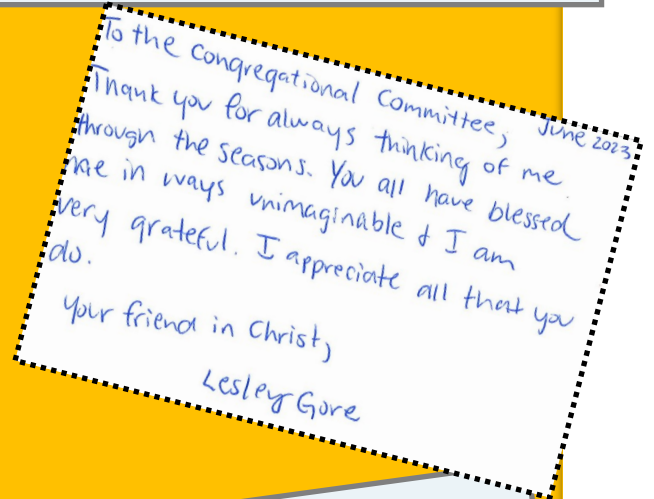 To the Congregational Committee, June 2023
Thank you for always thinking of me
through the seasons. You all have blessed
me in ways unimaginable & I am
very grateful. I appreciate all that you
do.
Your friend in Christ,
Lesley Gore